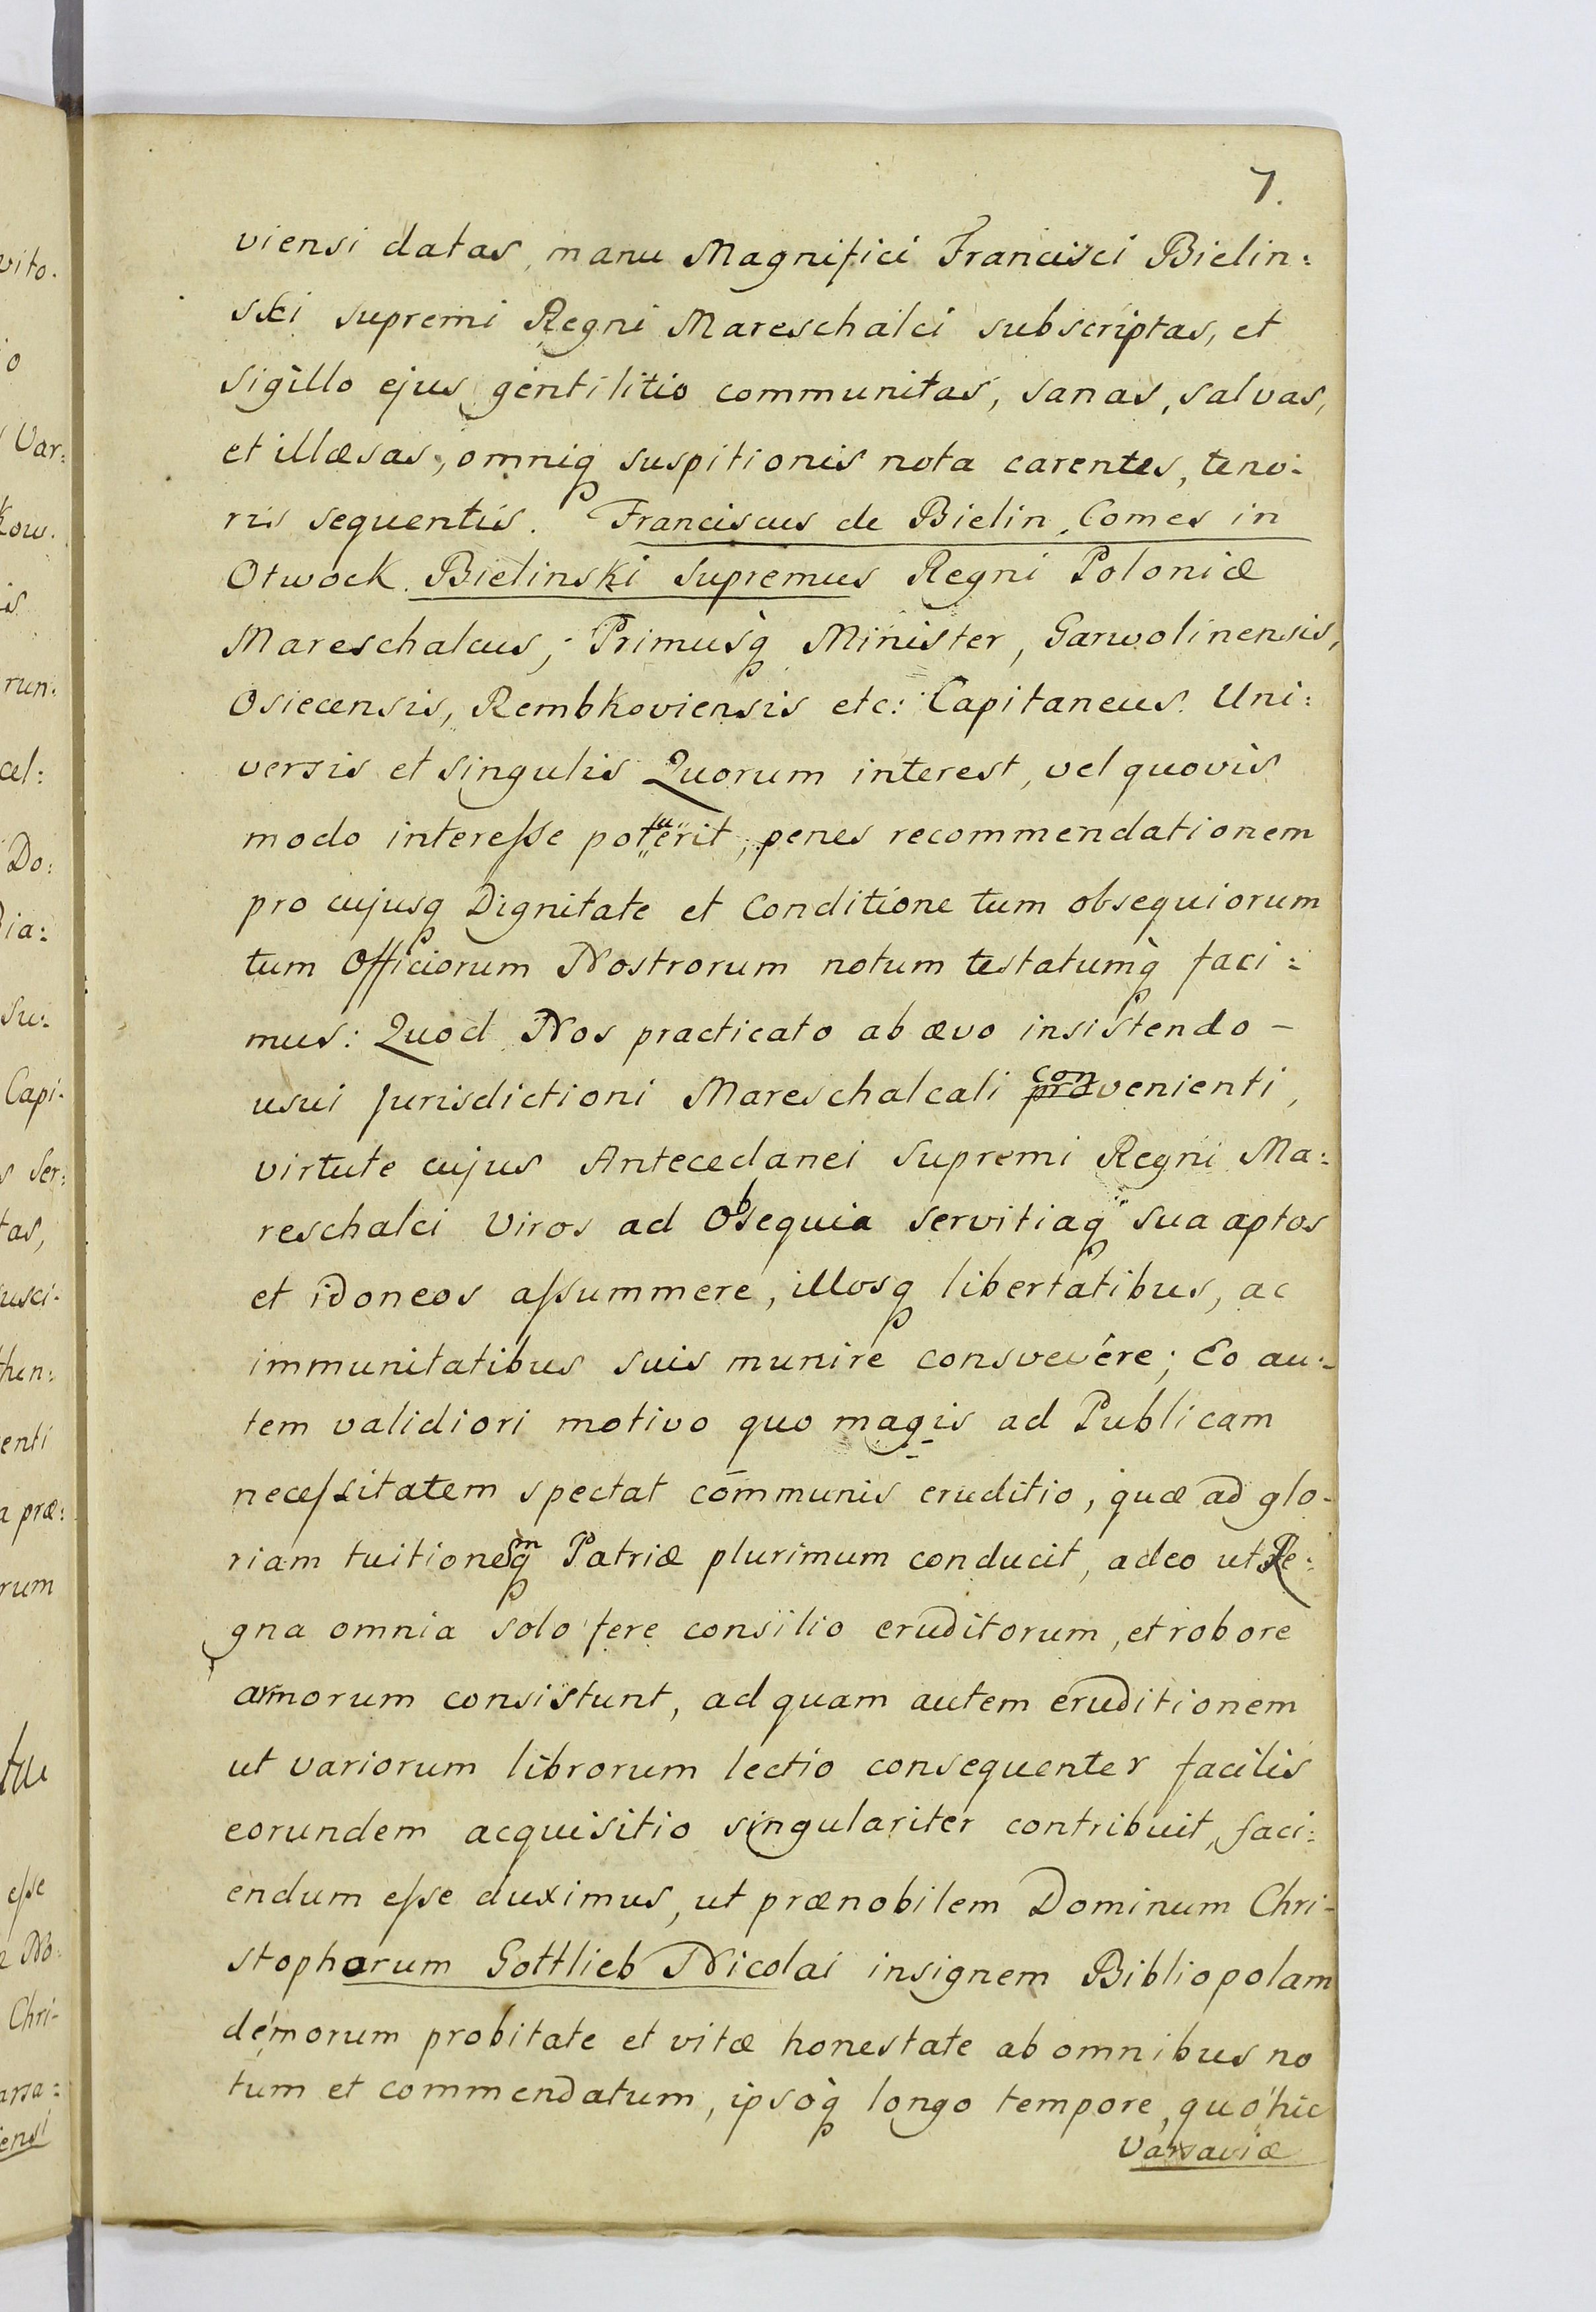 7.
viensi datas, manu Magnifici Francisci Bielin:
ski supremi Regni Mareschalci subscriptas, et
sigillo ejus gentilitio communitas, sanas, salvas,
et illæsas, omniq suspitionis nota carentes, teno:
ris sequentis. Franciscus de Bielin, Comes in
Otwock Bielinski supremus Regni Poloniæ
Mareschalcus, Primusq Minister, Garwolinensis,
Osiecensis, Rembkoviensis etc: Capitaneus. Uni:
versis et singulis Quorum interest, vel quovis
modo interesse poterit, penes recommendationem
pro cujusq Dignitate et Conditione tum obsequiorum
tum Officiorum Nostrorum notum testatumq faci:
mus: Quod Nos practicato ab ævo insistendo –
usui Jurisdictioni Mareschalcali convenienti,
virtute cujus Antecedanei Supremi Regni Ma:
reschalci Viros ad Obsequia servitiaq sua aptos
et idoneos assummere, illosq libertatibus, ac
immunitatibus suis munire consvevére; Eo au:
tem validiori motivo quo magis ad Publicam
necessitatem spectat com̄munis eruditio, quæ ad glo-
riam tuitionemq Patriæ plurimum conducit, adeo ut Re:
gna omnia solo fere consilio eruditorum, et robore
armorum consistunt, ad quam autem eruditionem
ut variorum librorum lectio consequenter facilis
eorundem acquisitio singulariter contribuit, faci:
endum esse duximus, ut prænobilem Dominum Chri-
stophorum Gottlieb Nicolai insignem Bibliopolam
de morum probitate et vitæ honestate ab omnibus no
tum et commendatum, ipsoq longo tempore, quo hic
Varsaviæ
vito.
o
Var:
kow.
is
run:
cel:
Do:
Dia:
Su:
Capi-
s Ser:
tas,
usci-
then:
enti
a præ:
rum
esse
No:
Chri-
arsa:
iensi